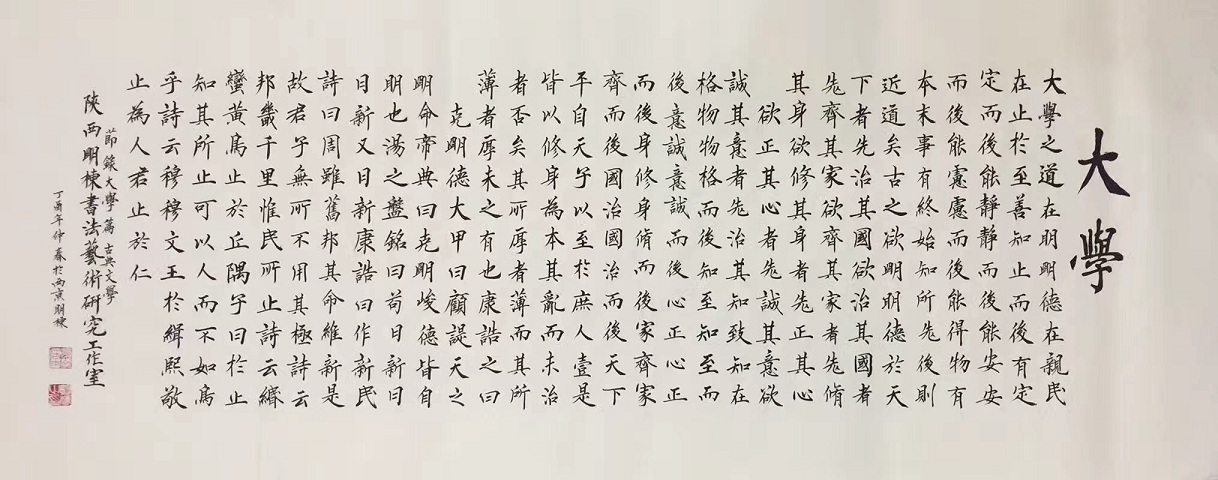 大學
大學之道在明明德在親民
在止於至善知止而後有定
定而後能靜靜而後能安安
而後能慮慮而後能得物有
本末事有終始知所先後則
近道矣古之欲明明德於天
下者先治其國欲治其國者
先齊其家欲齊其家者先脩
其身欲修其身者先正其心
欲正其心者先誠其意欲
誠其意者先治其知致知在
格物物格而後知至知至而
後意誠意誠而後心正心正
而後身修身脩而後家齊家
齊而後國治國治而後天下
平自天子以至於庶人壹是
皆以修身為本其亂而末治
者否矣其所厚者薄而其所
薄者厚未之有也康誥之曰
克明德大甲曰顧諟天之
明命帝典曰克明峻德皆自
明也湯之盤銘曰苟日新日
日新又日新康誥曰作新民
詩曰周雖舊邦其命維新是
故君子無所不用其極詩云
邦畿千里惟民所止詩云緡
蠻黃鳥止於丘隅子曰於止
知其所止可以人而不如鳥
乎詩云穆穆文王於緝熙敬
止為人君止於仁
節錄大學篇 古典文學
陝西明棟書法藝術研究工作室
丁酉年仲春於西京明棟